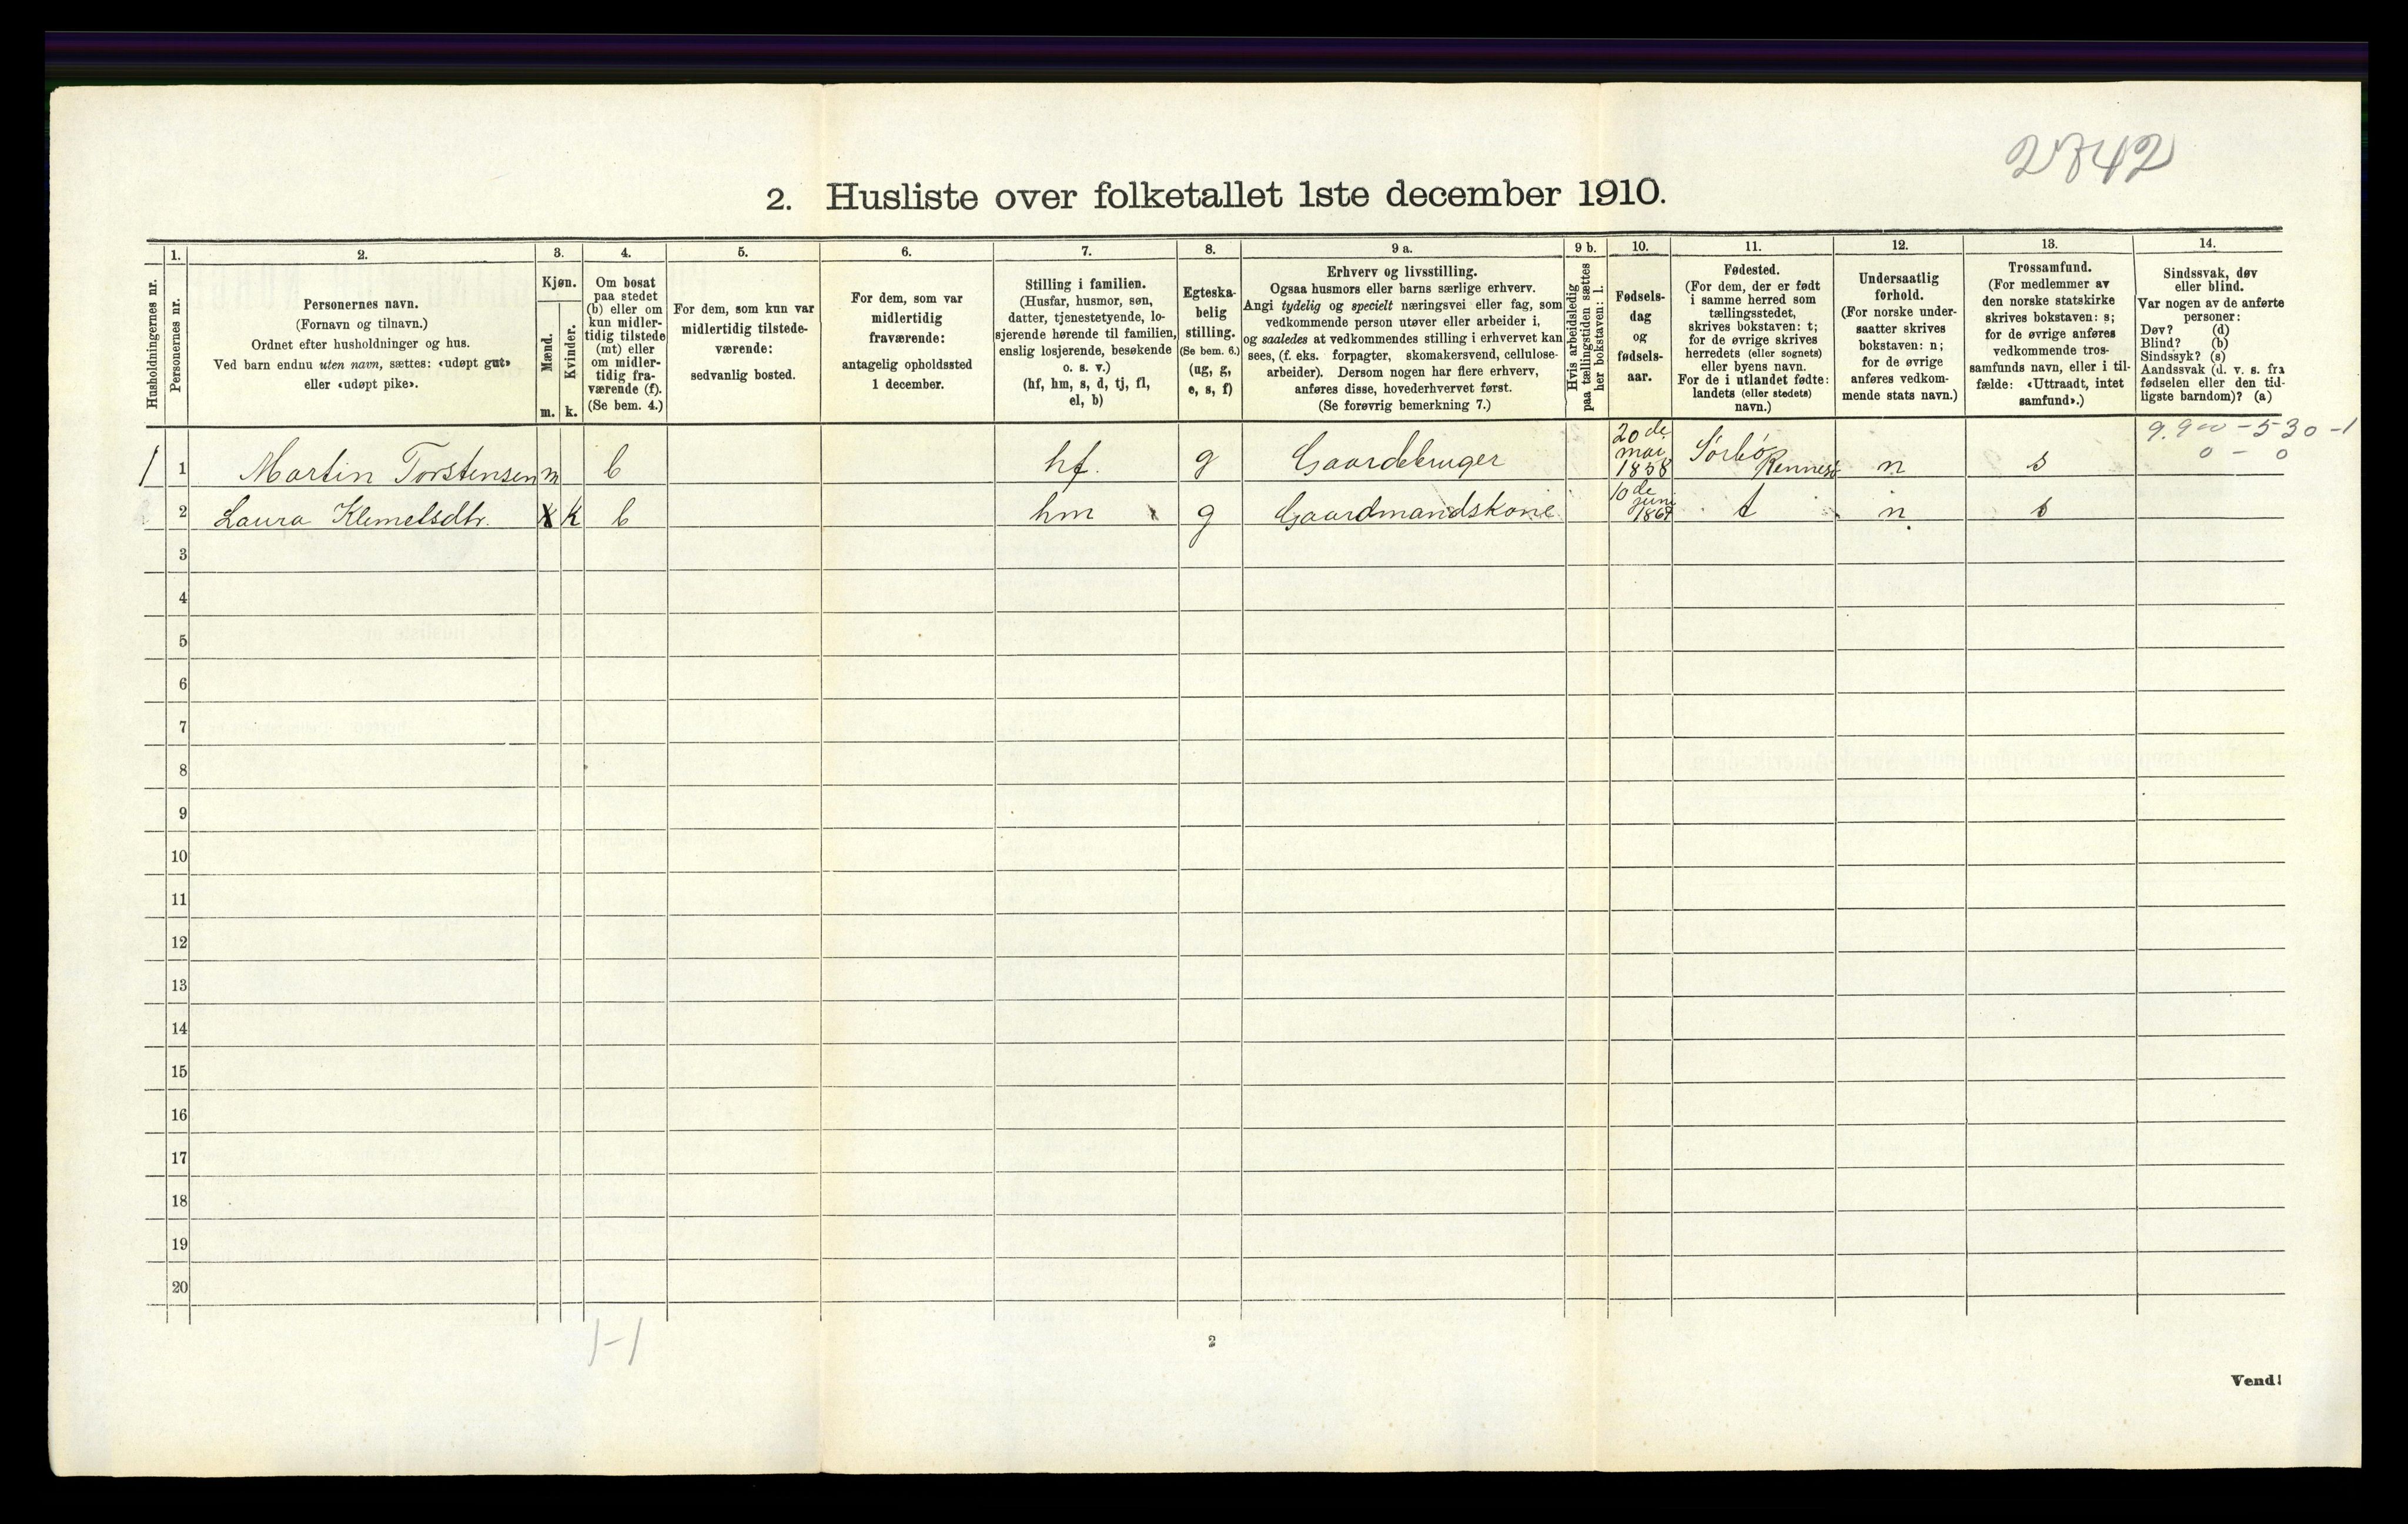 2742
2. Husliste over folketallet 1ste december 1910.
Husholdningernes nr.
1.
Personernes nr.
2.
Personernes navn.
(Fornavn og tilnavn.)
Ordnet efter husholdninger og hus.
Ved barn endnu uten navn, sættes: «udøpt gut»
eller «udøpt pike».
3.
Kjøn.
Mænd.
m.
Kvinder.
k.
4.
Om bosat
paa stedet
(b) eller om
kun midler-
tidig tilstede
(mt) eller
om midler-
tidig fra-
værende (f).
(Se bem. 4.)
5.
For dem, som kun var
midlertidig tilstede-
værende:
sedvanlig bosted.
6.
For dem, som var
midlertidig
fraværende:
antagelig opholdssted
1 december.
7.
Stilling i familien.
(Husfar, husmor, søn,
datter, tjenestetyende, lo-
sjerende hørende til familien,
enslig losjerende, besøkende
o. s. v.)
(hf, hm, s, d, tj, fl,
el, b)
8.
Egteska-
belig
stilling.
(Se bem. 6.)
(ug, g,
e, s, f)
9 a.
Erhverv og livsstilling.
Ogsaa husmors eller barns særlige erhverv.
Angi tydelig og specielt næringsvei eller fag, som
vedkommende person utøver eller arbeider i,
og saaledes at vedkommendes stilling i erhvervet kan
sees, (f. eks. forpagter, skomakersvend, cellulose-
arbeider). Dersom nogen har flere erhverv,
anføres disse, hovederhvervet først.
(Se forøvrig bemerkning 7.)
9 b.
Hvis arbeidsledig
paa tællingstiden sættes
her bokstaven: l.
10.
Fødsels-
dag
og
fødsels-
aar.
11.
Fødested.
(For dem, der er født
i samme herred som
tællingsstedet,
skrives bokstaven: t;
for de øvrige skrives
herredets (eller sognets)
eller byens navn.
For de i utlandet fødte:
landets (eller stedets)
navn.)
12.
Undersaatlig
forhold.
(For norske under-
saatter skrives
bokstaven: n;
for de øvrige
anføres vedkom-
mende stats navn.)
13.
Trossamfund.
(For medlemmer av
den norske statskirke
skrives bokstaven: s;
for de øvrige anføres
vedkommende tros-
samfunds navn, eller i til-
fælde: «Uttraadt, intet
samfund».)
14.
Sindssvak, døv
eller blind.
Var nogen av de anførte
personer:
Døv? (d)
Blind? (b)
Sindssyk? (s)
Aandssvak (d. v. s. fra
fødselen eller den tid-
ligste barndom)? (a)
9.900 - 530 - 1
0 - 0
1 1 Martin Torstensen m b hf. g Gaardebruger 20de mai 1858 Sørbø Rennesø n s
2 Laura Klemetsdtr. k b hm g Gaardmandskone 10de juni t n s
3
4
5
6
7
8
9
10
11
12
13
14
15
16
17
18
19
20
1-1
2
Vend!